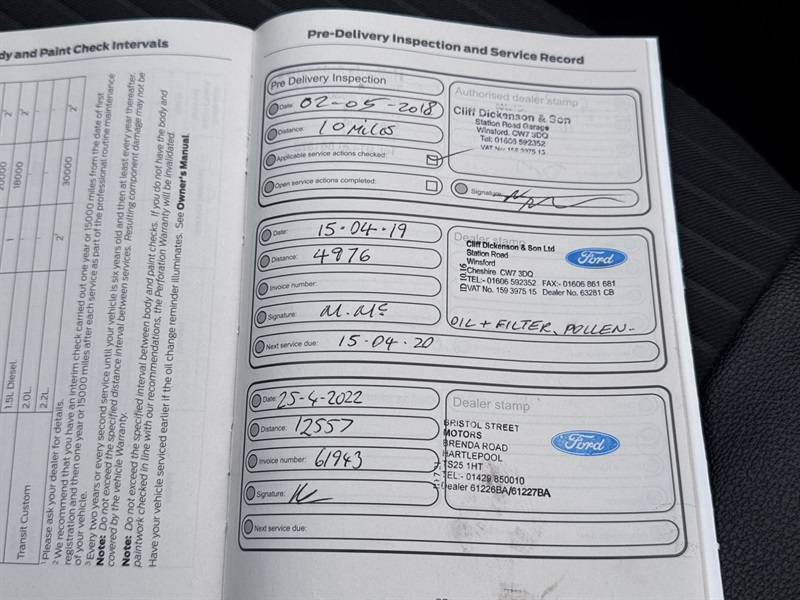 dy and Paint Check Intervals
20000
2
18000
2
1
30000
2¹
2¹
1.5L Diesel.
2.0L.
2.2L.
Transit Custom
¹ Please ask your dealer for details.
² We recommend that you have an interim check carried out one year or 15000 miles from the date of first
registration and then one year or 15000 miles after each service as part of the professional routine maintenance
of your vehicle.
³ Every two years or every second service until your vehicle is six years old and then at least every year thereafter.
Note: Do not exceed the specified distance interval between services. Resulting component damage may not be
covered by the vehicle Warranty.
Note: Do not exceed the specified interval between body and paint checks. If you do not have the body and
paintwork checked in line with our recommendations, the Perforation Warranty will be invalidated.
Have your vehicle serviced earlier if the oil change reminder illuminates. See Owner's Manual.
Pre-Delivery Inspection and Service Record
Pre Delivery Inspection
Date: 02-05-2018
Distance: 10 Miles
Applicable service actions checked:
Open service actions completed:
Authorised dealer stamp
Cliff Dickenson & Son
Station Road Garage
Winsford. CW7 3DQ
Tel: 01606 592352
VAT No: 159 3975 15
Signature:
Date: 15-04-19
Distance: 4976
Invoice number:
Signature: M. Mc
Next service due: 15-04-20
Dealer stamp
Cliff Dickenson & Son Ltd
Station Road
Winsford
Cheshire CW7 3DQ
TEL:- 01606 592352 FAX:- 01606 861 681
VAT No. 159 3975 15 Dealer No. 63281 CB
Ford
OIL + FILTER, POLLEN-
Date: 25-4-2022
Distance: 12557
Invoice number: 61943
Signature:
Next service due:
Dealer stamp
BRISTOL STREET
MOTORS
BRENDA ROAD
HARTLEPOOL
TS25 1HT
TEL:- 01429 850010
Dealer 61226BA/61227BA
Ford